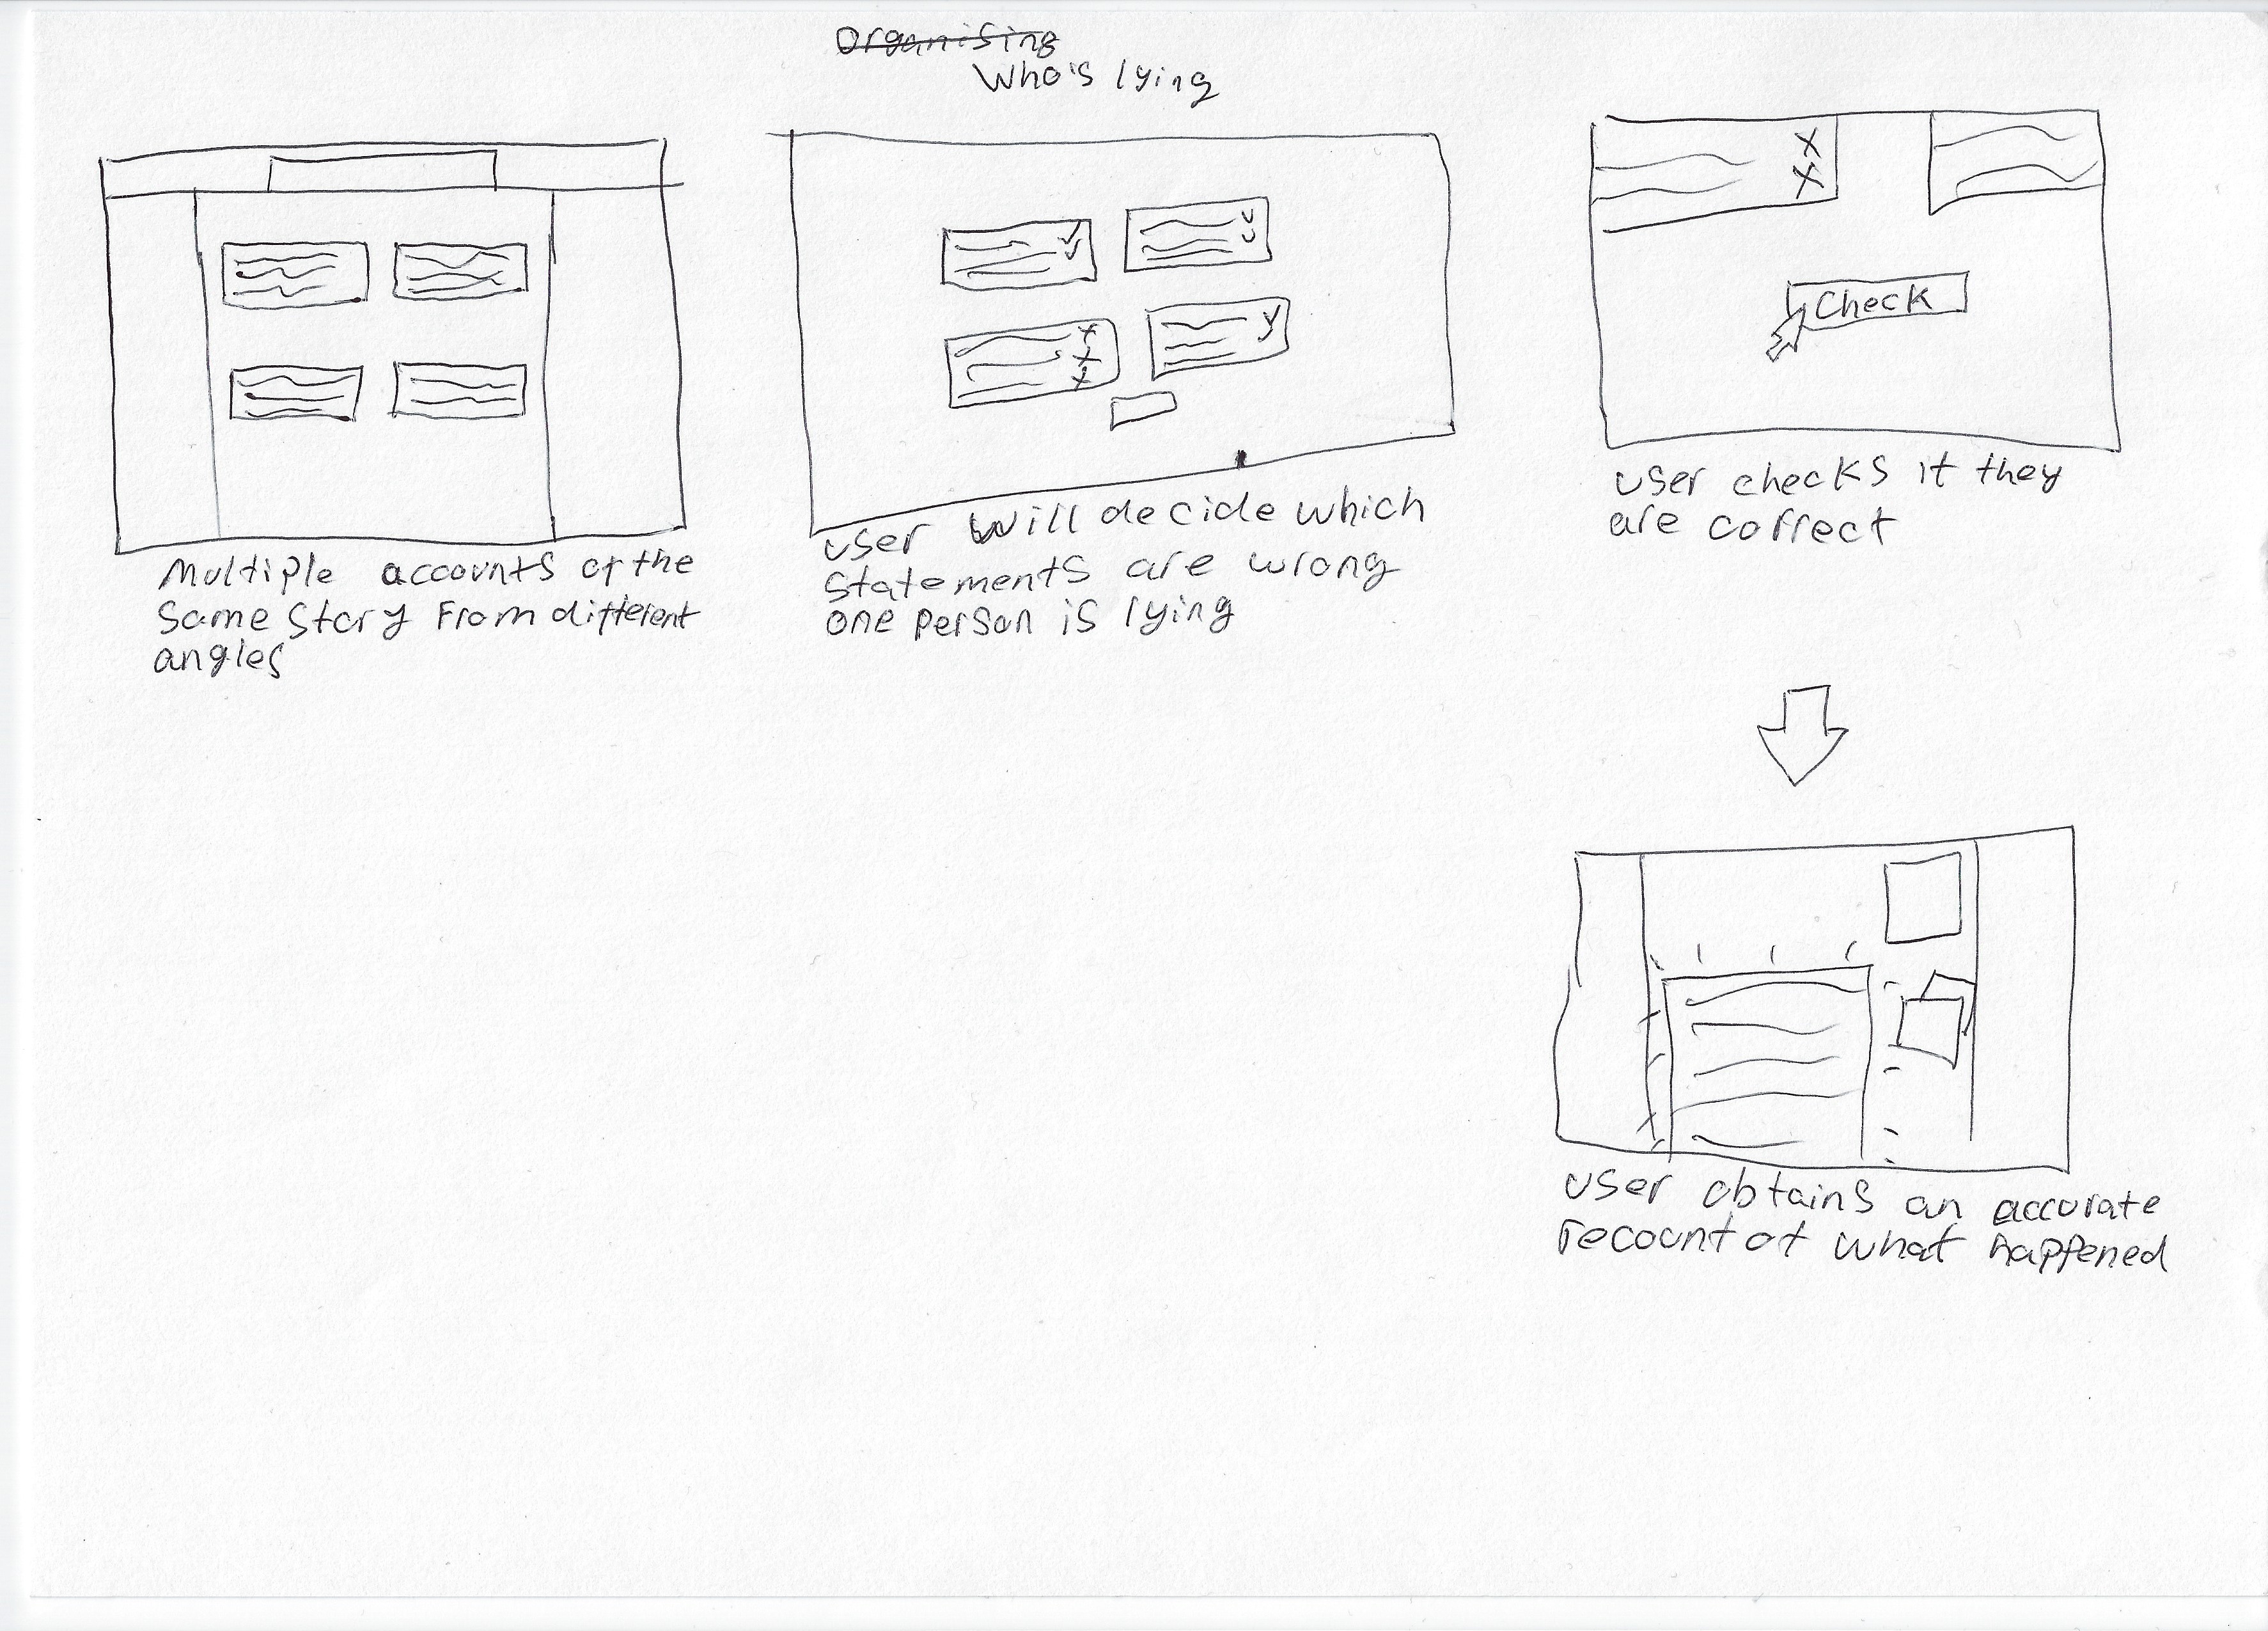 Organising
Who's lying
Multiple accounts of the
same story from different
angles
user will decide which
statements are wrong
one person is lying
Check
user checks if they
are correct
user obtains an accurate
recount of what happened